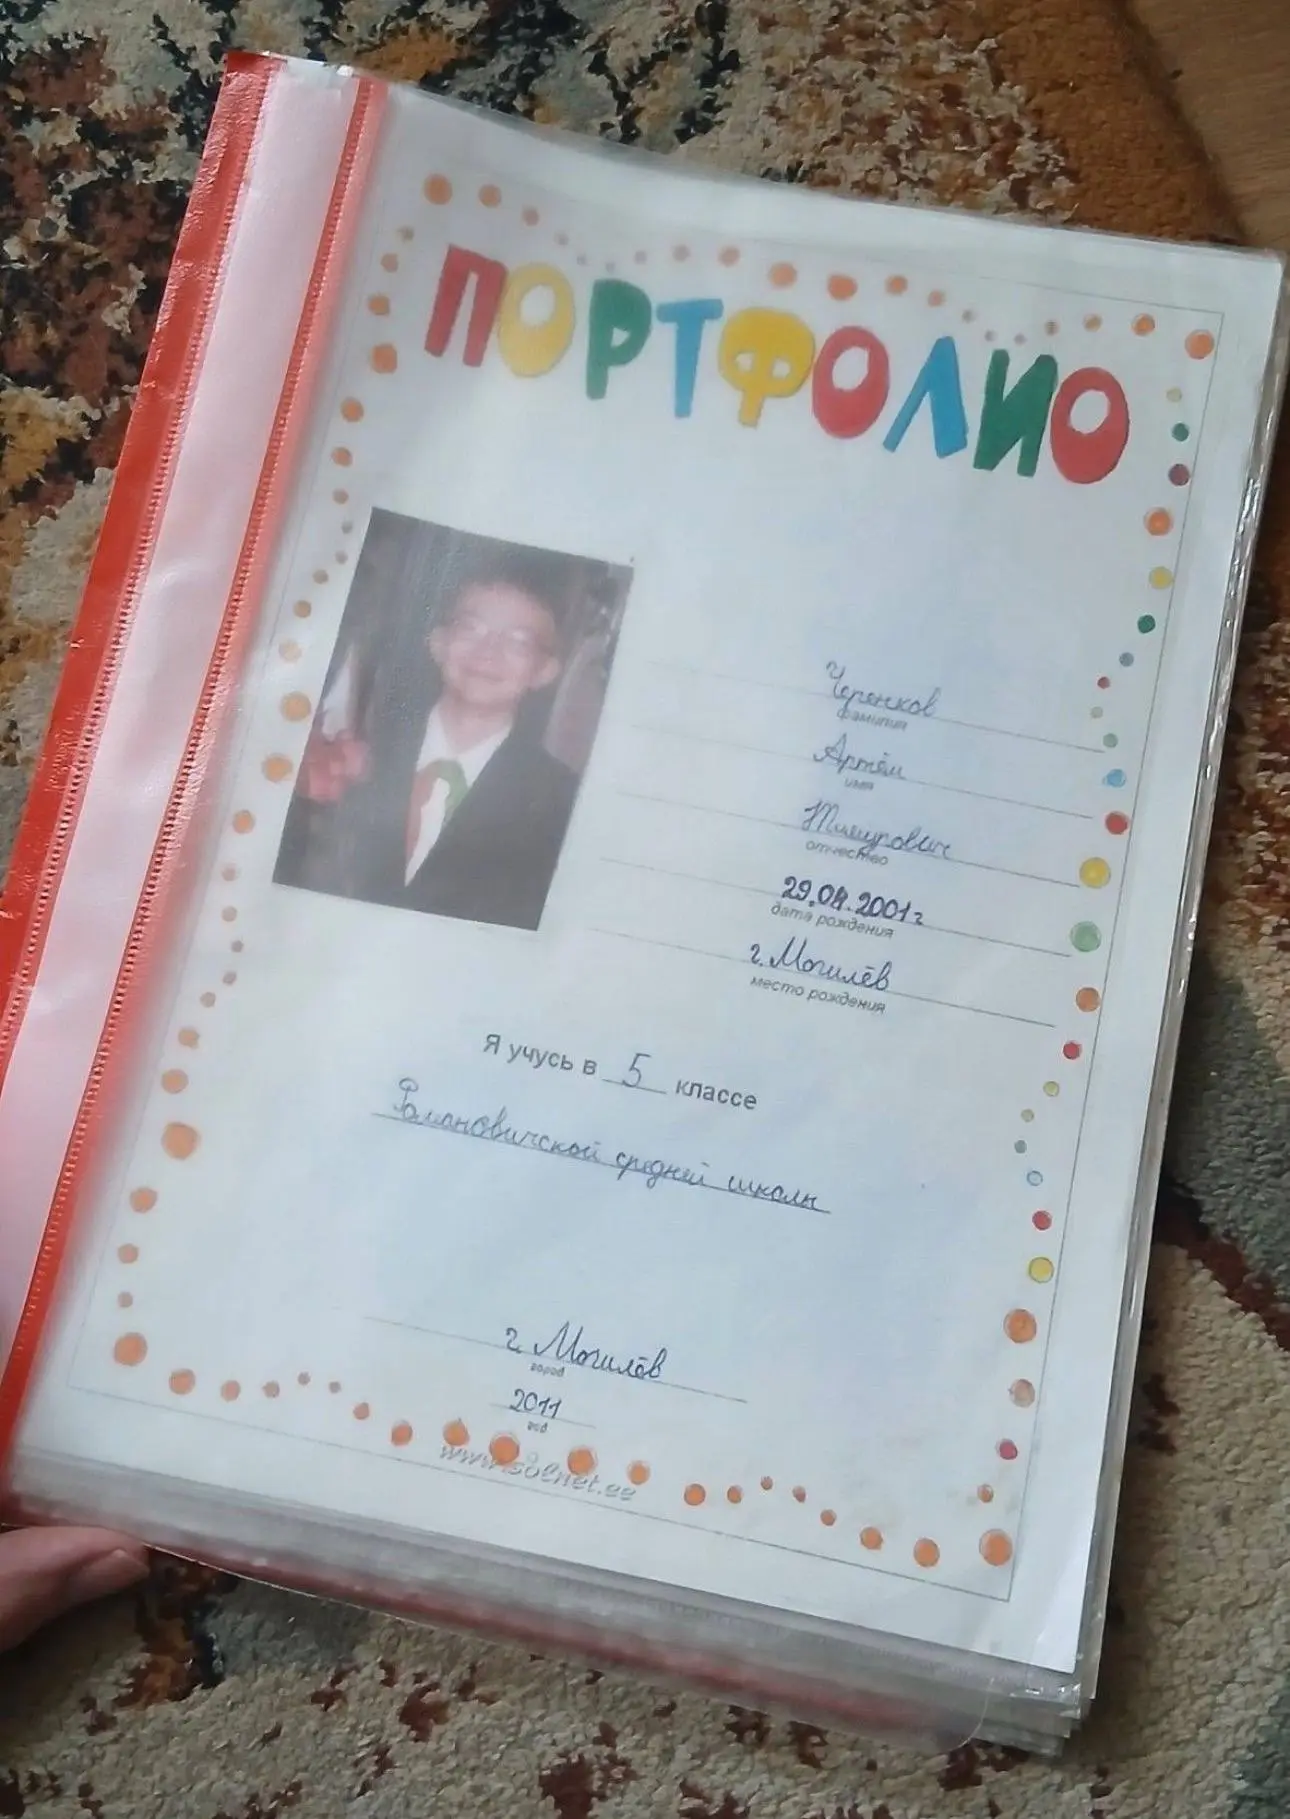 ПОРТФОЛИО
Черенков
фамилия
Артём
имя
Тимурович
отчество
29.04.2001г
дата рождения
г. Могилёв
место рождения
Я учусь в 5 классе
Романовичской средней школы
г. Могилёв
город
2011
год
www.solnet.ee